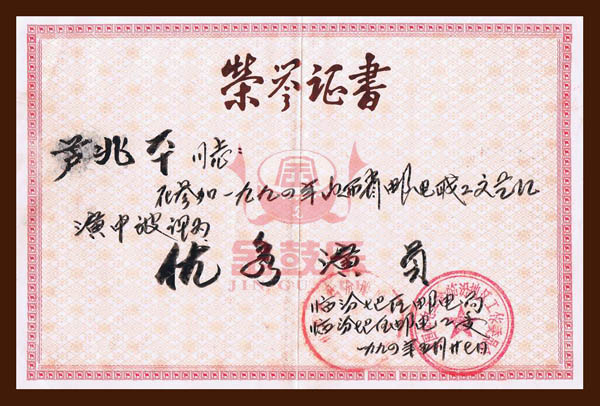 榮誉证書
芦兆平 同志：
在参加一九九四年山西省邮电职工文艺汇
演中被评为
优秀演员
金鼓
临汾地区邮电局
临汾地区邮电工委
一九九四年五月廿七日